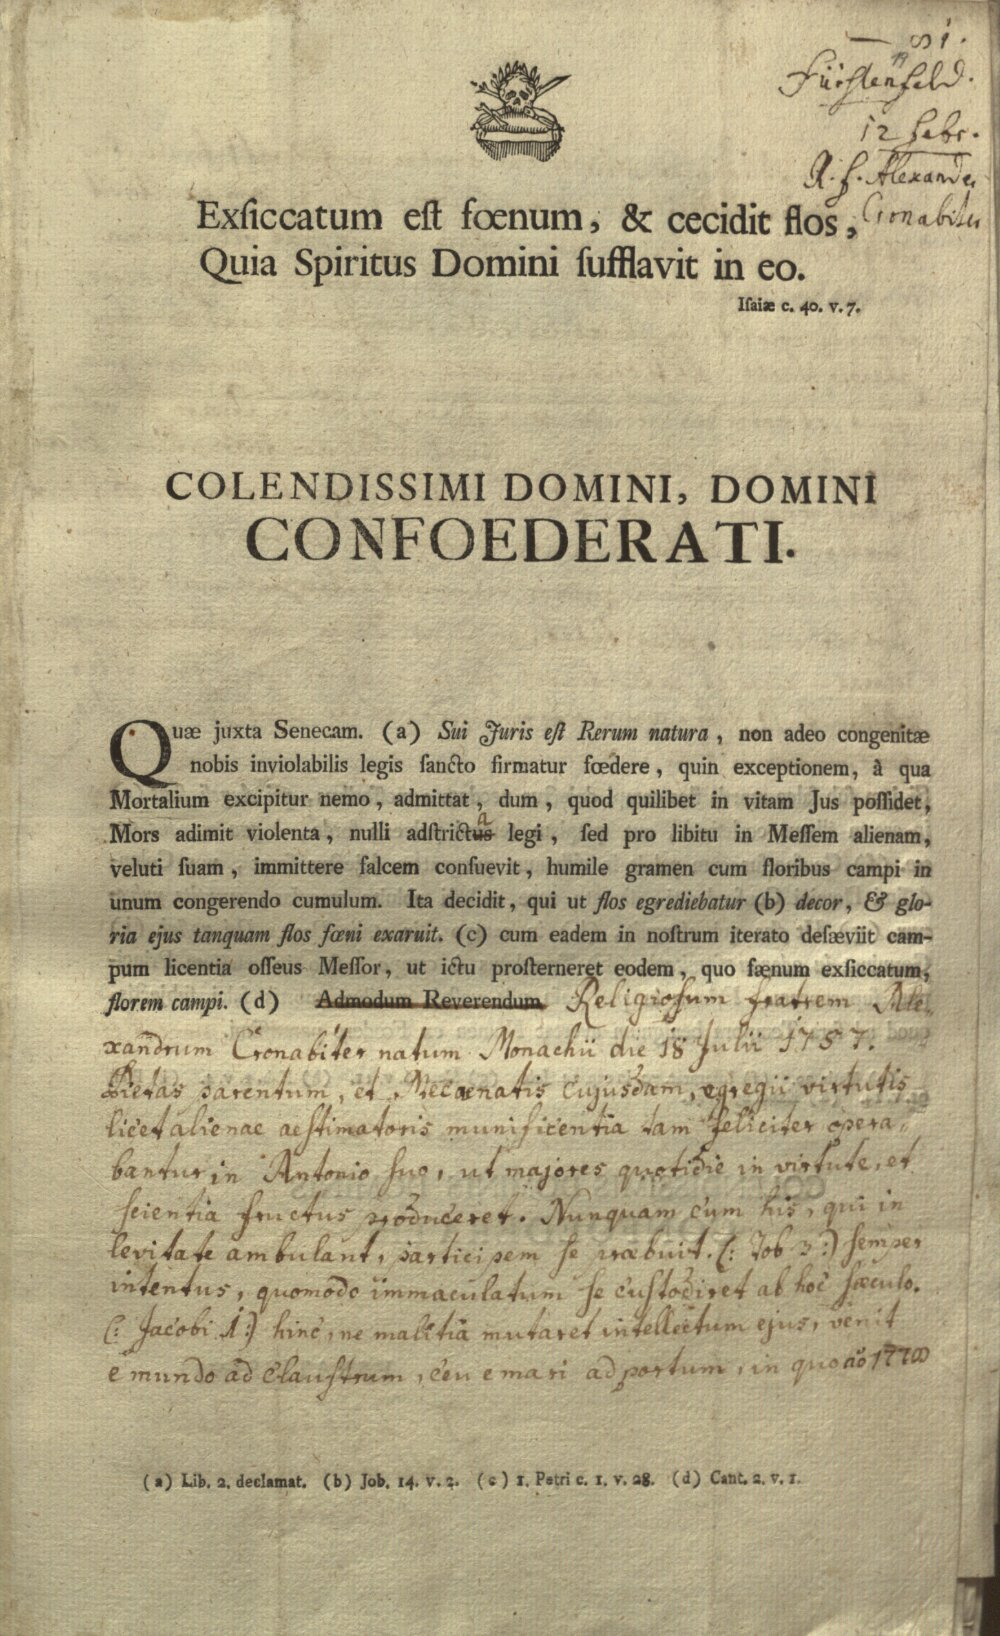 — 81.
Fürstenfeld.
12 febr.
R. f. Alexander
Cronabiter
Exſiccatum eſt fœnum, & cecidit flos,
Quia Spiritus Domini ſufflavit in eo.
Iſaiæ c. 40. v. 7.
COLENDISSIMI DOMINI, DOMINI
CONFOEDERATI.
Quæ juxta Senecam. (a) Sui Juris eſt Rerum natura, non adeo congenitæ
nobis inviolabilis legis ſancto firmatur fœdere, quin exceptionem, à qua
Mortalium excipitur nemo, admittat, dum, quod quilibet in vitam Jus poſſidet,
Mors adimit violenta, nulli adſtrictus a legi, ſed pro libitu in Meſſem alienam,
veluti ſuam, immittere falcem conſuevit, humile gramen cum floribus campi in
unum congerendo cumulum. Ita decidit, qui ut flos egrediebatur (b) decor, & glo-
ria ejus tanquam flos fœni exaruit. (c) cum eadem in noſtrum iterato deſæviit cam-
pum licentia oſſeus Meſſor, ut ictu proſterneret eodem, quo fænum exſiccatum,
florem campi. (d) Admodum Reverendum Religiosum fratrem Ale-
xandrum Cronabiter natum Monachii die 18 Julii 1757.
Pietas parentum, et Mecænatis cujusdam, egregii virtutis
licet alienae aestimatoris munificentia tam feliciter opera-
bantur in Antonio suo, ut majores quotidie in virtute, et
scientia fructus produceret. Nunquam cum his, qui in
levitate ambulant, participem se præbuit. (: Job 3 :) semper
intentus, quomodo immaculatum se custodiret ab hoc sæculo.
(: Jacobi 1 :) hinc, ne malitia mutaret intellectum ejus, venit
e mundo ad Claustrum, ceu e mari ad portum, in quo aõ 1778
(a) Lib. 2. declamat. (b) Job. 14. v. 2. (c) 1. Petri c. 1. v. 28. (d) Cant. 2. v. 1.